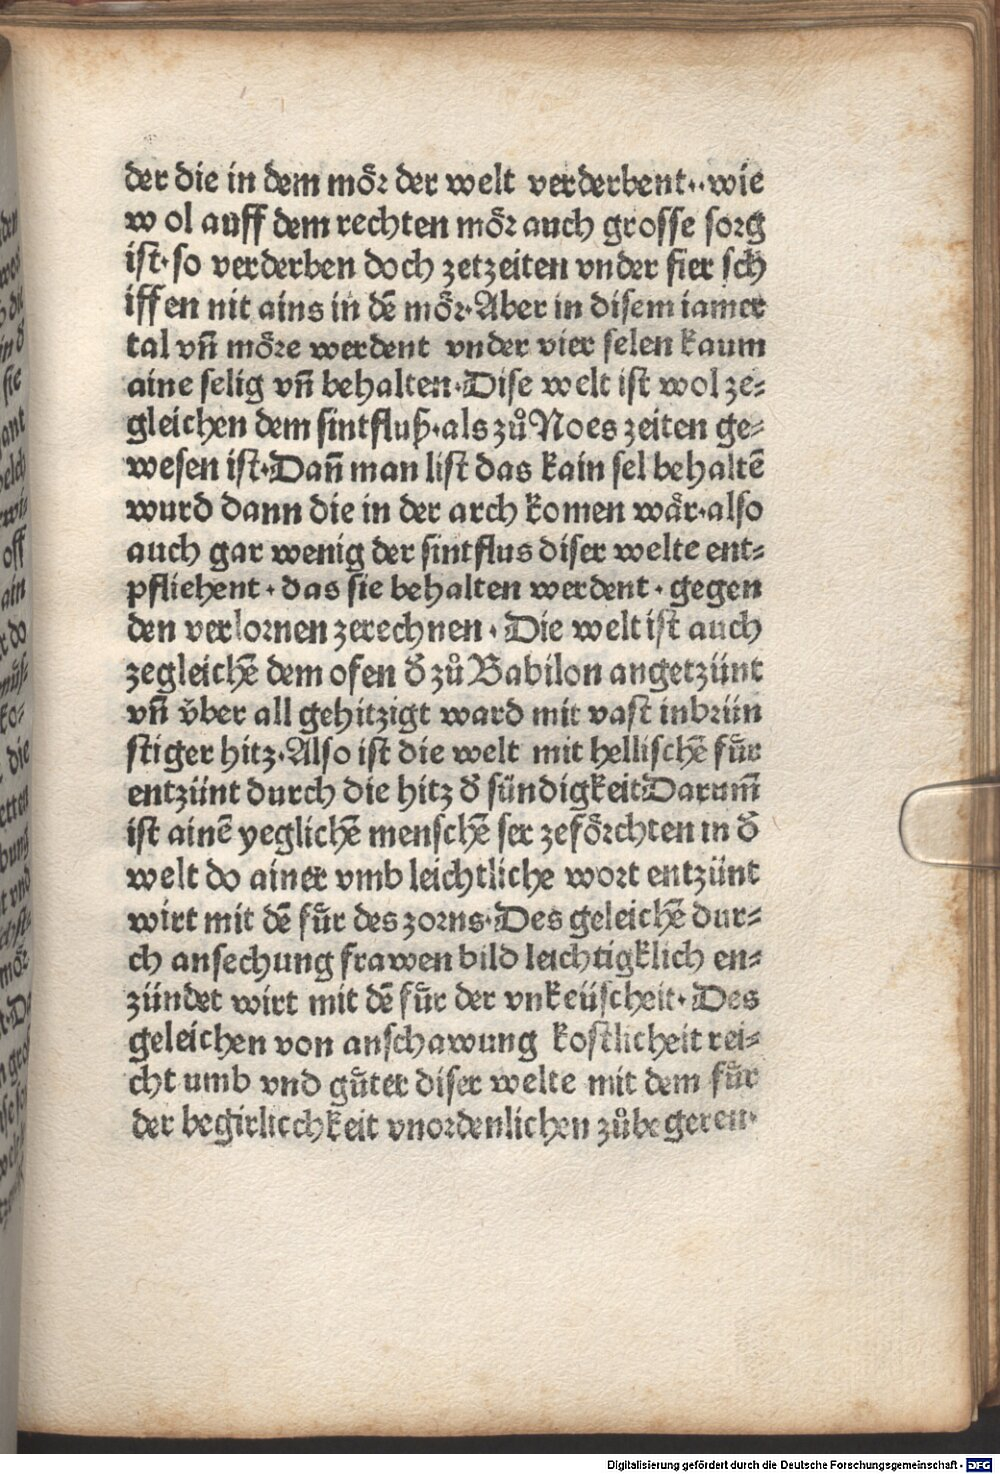 der die in dem mőꝛ der welt verderbent··wie
w ol auff dem rechten mőꝛ auch grosse soꝛg
ist·so verderben doch zetzeiten vnder fier sch
iffen nit ains in dē mőꝛ·Aber in disem iamer
tal vn̄ mőꝛe werdent vnder vier selen kaum
aine selig vn̄ behalten·Dise welt ist wol ze⸗
gleichen dem sintfluß·als zů Noes zeiten ge⸗
wesen ist·Dan̄ man list das kain sel behaltē
wurd dann die in der arch komen wär·also
auch gar wenig der sintflus diser welte ent⸗
pfliehent·das sie behalten werdent·gegen
den verloꝛnen zerechnen·Die welt ist auch
zegleichē dem ofen d̄ zů Babilon angetzünt
vn̄ v̈ber all gehitzigt ward mit vast inbꝛün
stiger hitz·Also ist die welt mit hellischē für
entzünt durch die hitz d̄ sündigkeit Darum̄
ist ainē yeglichē menschē ser zefőꝛchten in d̄
welt do ainer vmb leichtliche woꝛt entzünt
wirt mit dē für des zoꝛns·Des geleichē dur⸗
ch ansechung frawen bild leichtigklich en⸗
zündet wirt mit dē für der vnkeüscheit·Des
geleichen von anschawung kostlicheit rei⸗
cht umb vnd gůter diser welte mit dem für
der begirlicchkeit vnoꝛdenlichen zůbegeren·
Digitalisierung gefördert durch die Deutsche Forschungsgemeinschaft - DFG